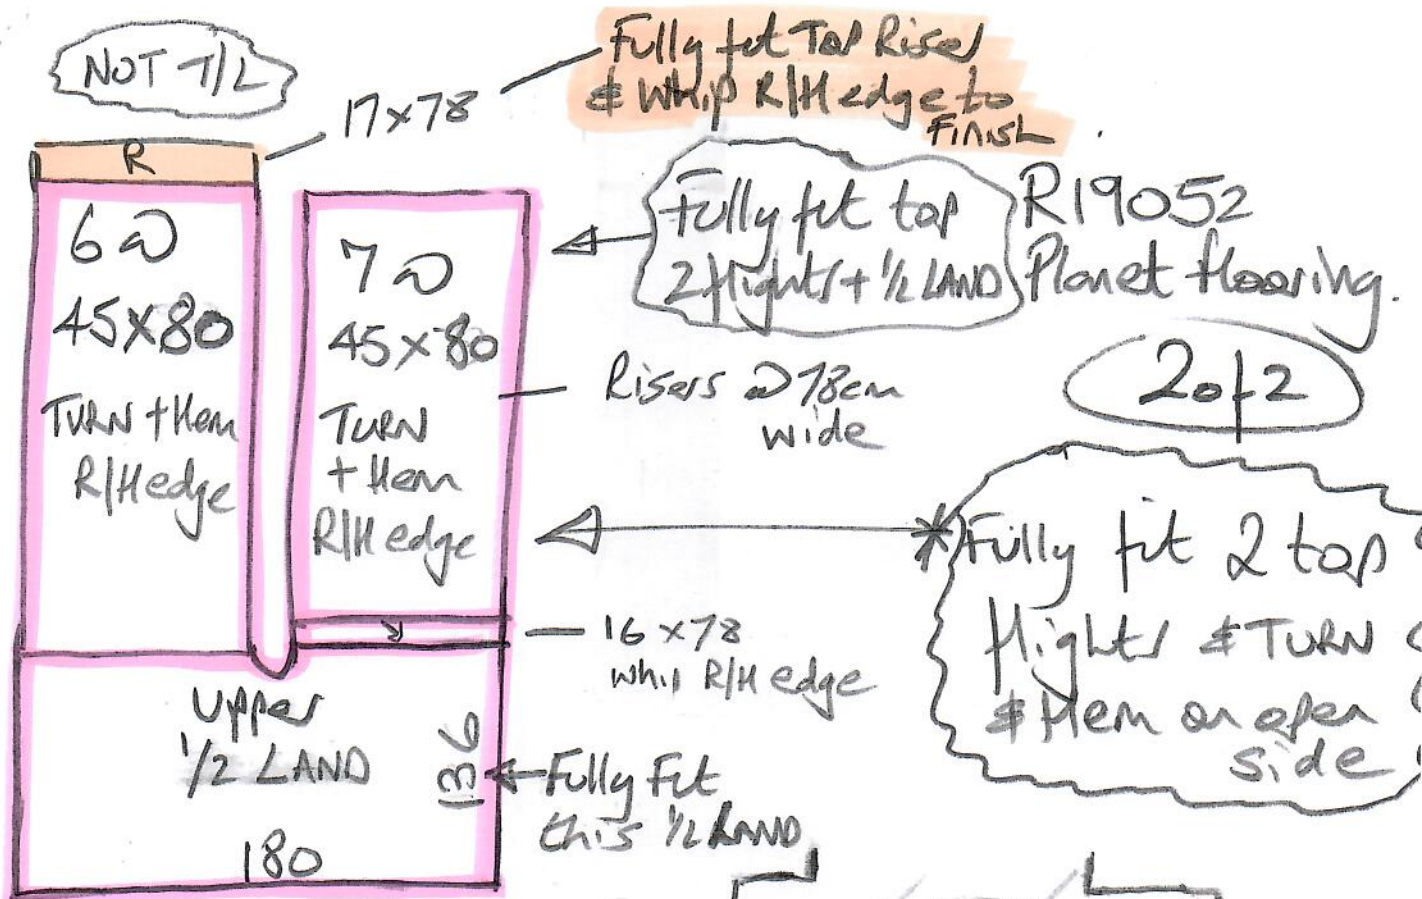 NOT T/L
17x78
Fully fit Top Riser
& Whip R/H edge to
Finish
R
6 @
45x80
TURN + Hem
R/H edge
7 @
45x80
TURN
+ Hem
R/H edge
Fully fit top
2 flights + 1/2 LAND
R19052
Planet flooring.
2 of 2
Risers @ 78cm
wide
* Fully fit 2 top
flights & TURN
& Hem on open
side
16 x 78
whip R/H edge
Upper
1/2 LAND
136
Fully Fit
this 1/2 LAND
180